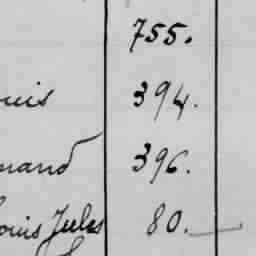 755.
uis 394.
nand 396.
ouis Jules 80.